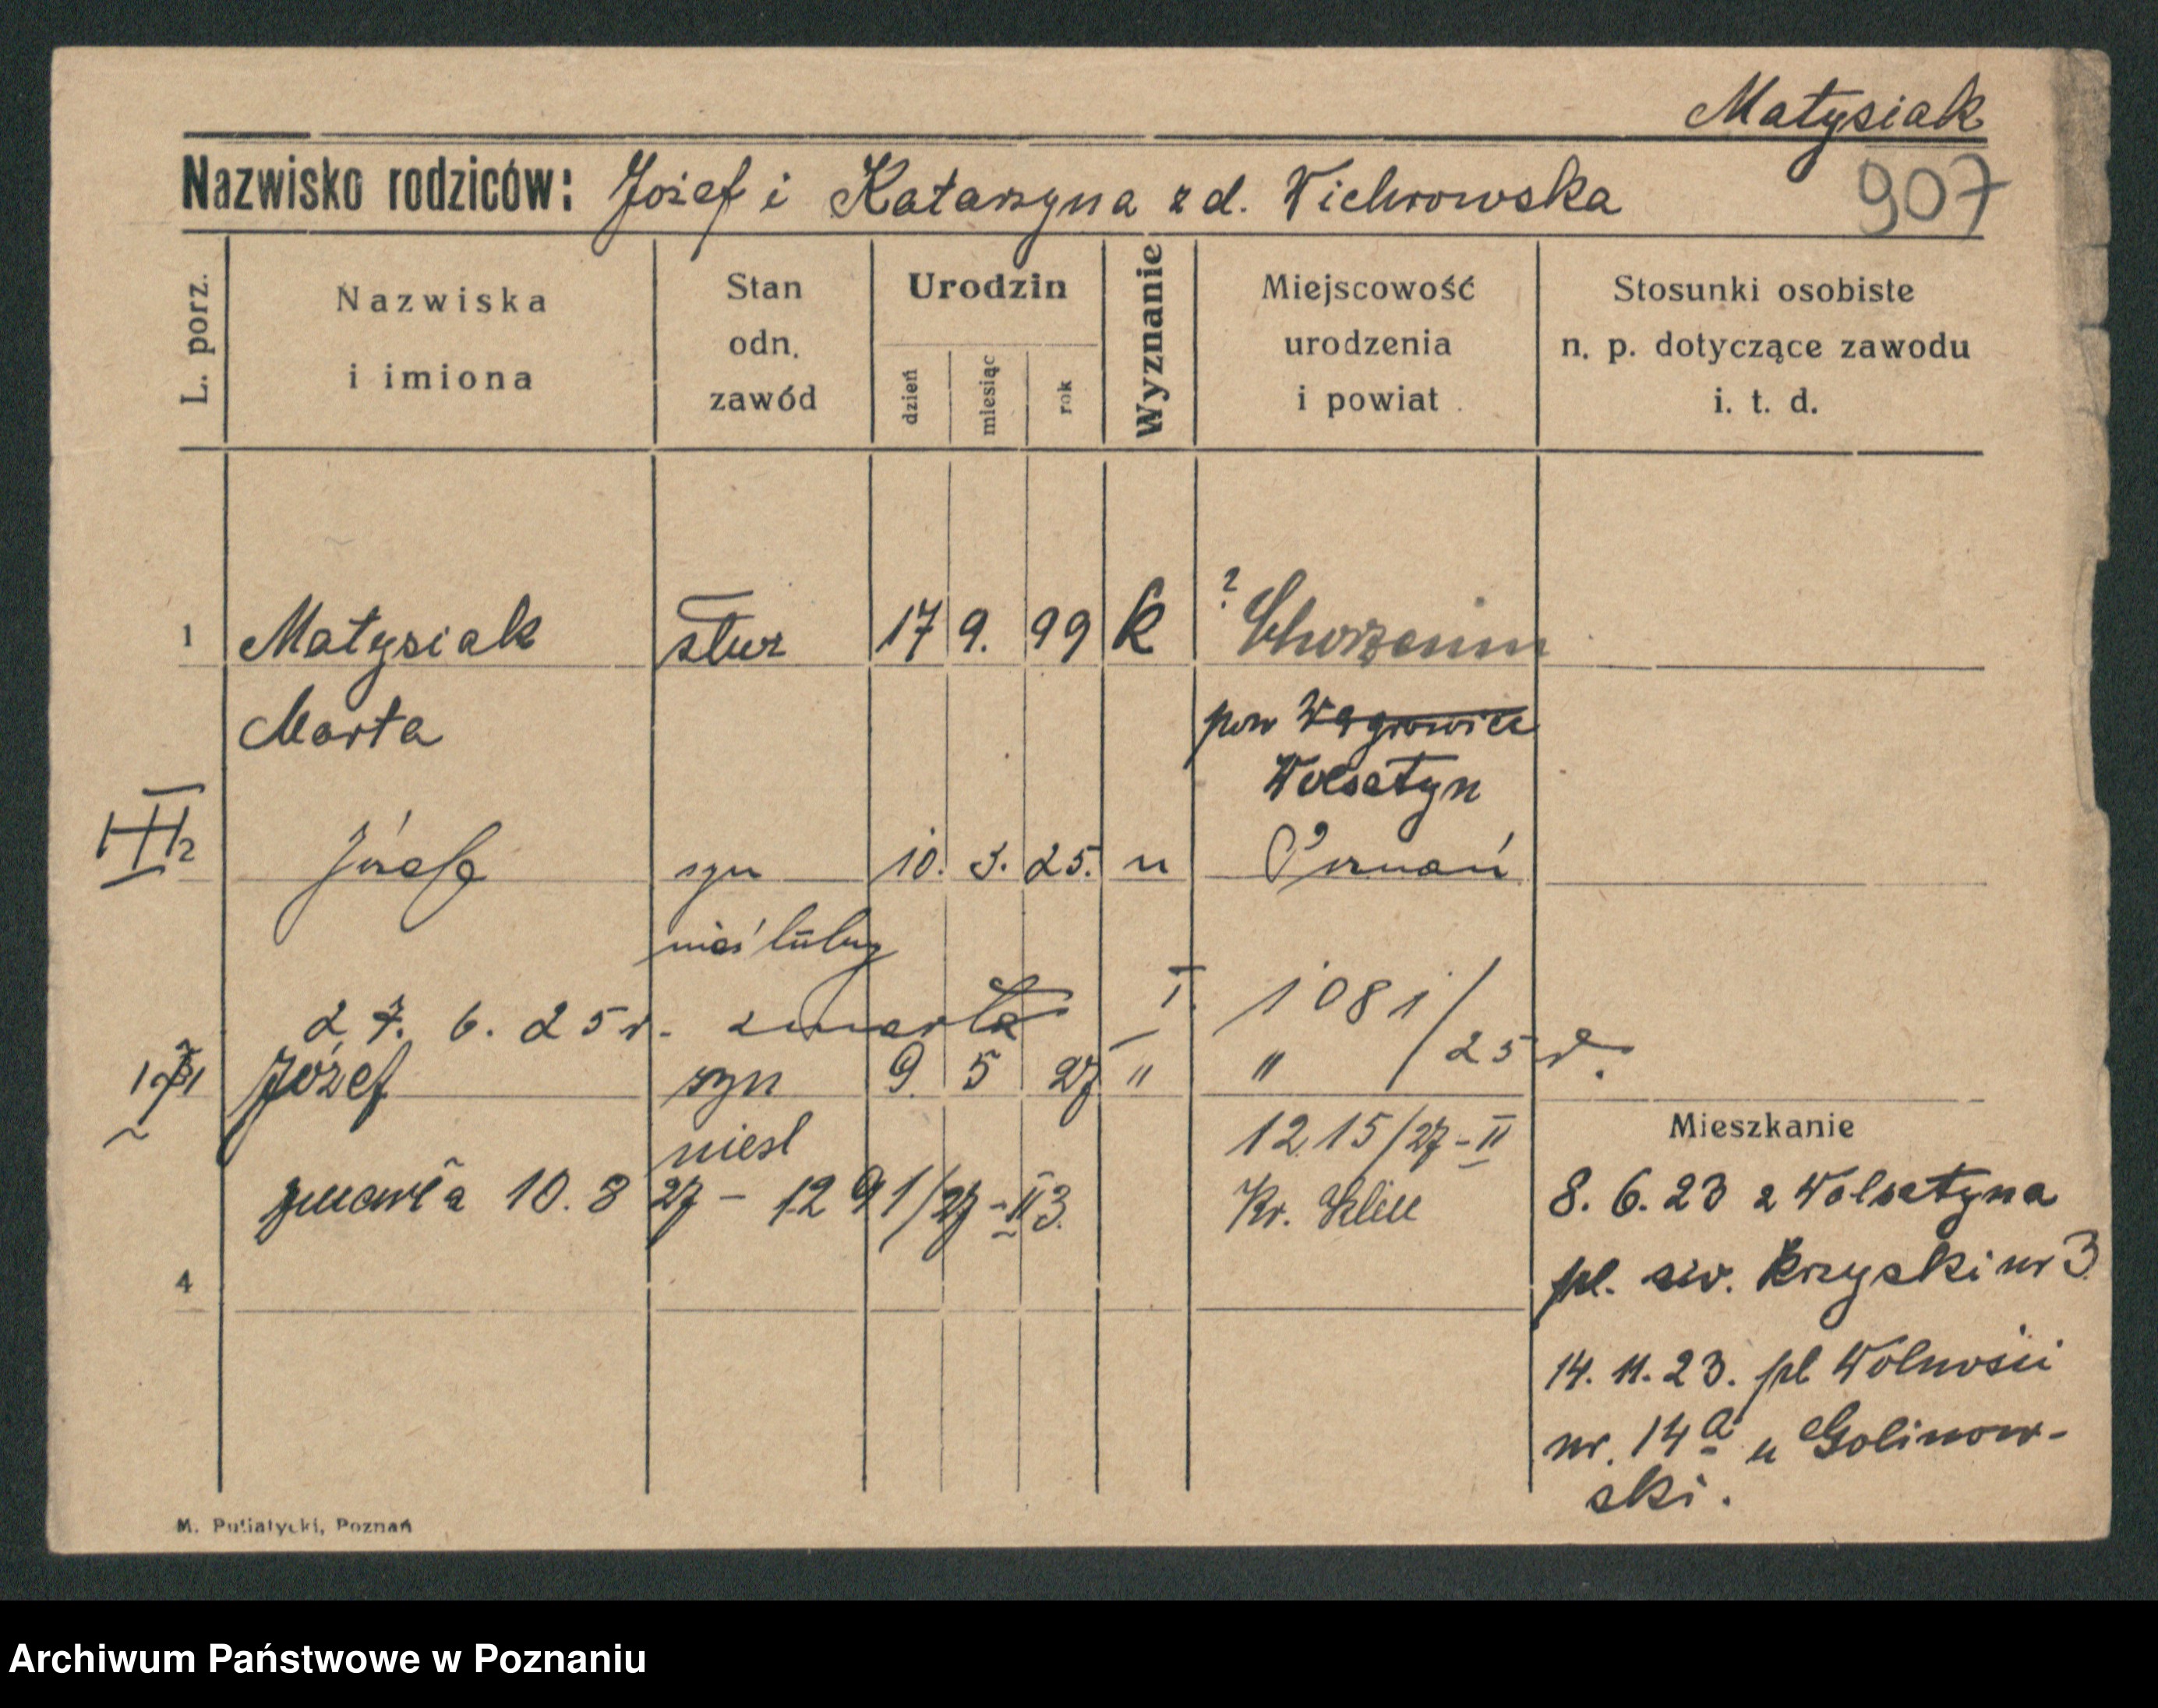 Matysiak
Nazwisko rodziców: Józef i Katarzyna z d. Wichrowska
907
L. porz.
Nazwiska
i imiona
Stan
odn.
zawód
Urodzin
dzień
miesiąc
rok
Wyznanie
Miejscowość
urodzenia
i powiat
Stosunki osobiste
n. p. dotyczące zawodu
i. t. d.
1 Matysiak służ 17 9. 99 k ? Chorzemin
Marta pow Wągrowiec
Wolsztyn
2 Józefa syn 10. 3. 25. " Poznań
nieślubny
27. 6. 25 r. zmarła I. 1081/25 r.
Józef syn 9. 5 27 " "
niesl 1215/27-II
Mieszkanie
zmarła 10. 8 27 - 1291/27-II 3. Kr.
8. 6. 23 z Wolsztyna
4
pl. św. Krzyski nr 3.
14. 11. 23. pl Wolności
nr. 14a u Golinow-
ski.
M. Putiatycki, Poznań
Archiwum Państwowe w Poznaniu